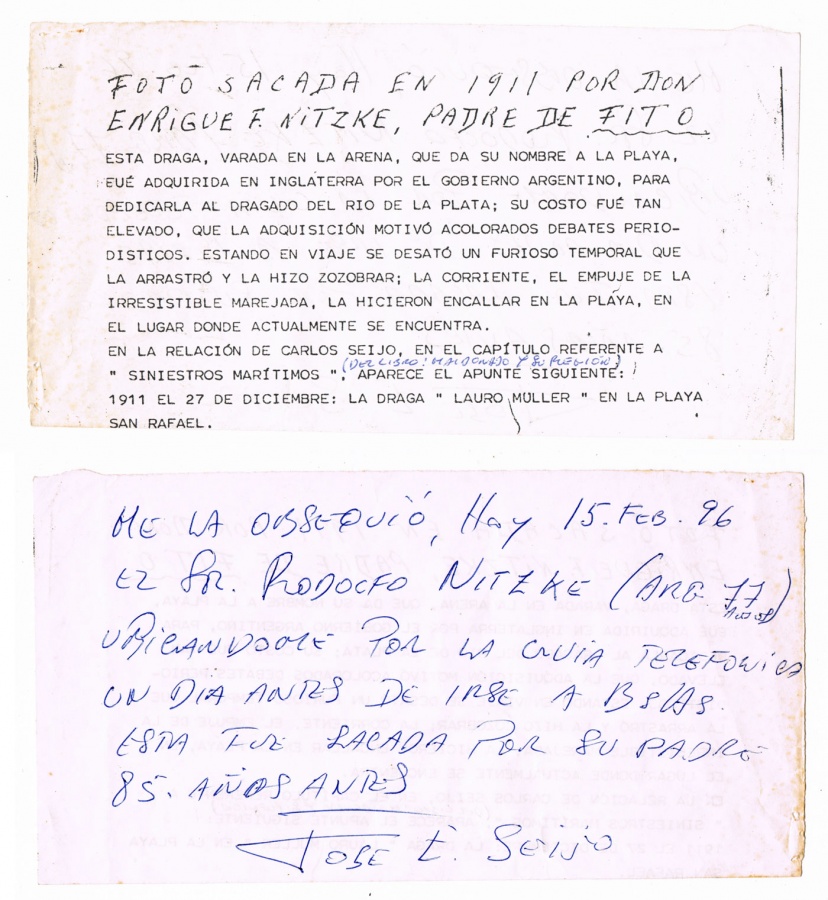 FOTO SACADA EN 1911 POR DON
ENRIGUE F. NITZKE, PADRE DE FITO
ESTA DRAGA, VARADA EN LA ARENA, QUE DA SU NOMBRE A LA PLAYA,
FUÉ ADQUIRIDA EN INGLATERRA POR EL GOBIERNO ARGENTINO, PARA
DEDICARLA AL DRAGADO DEL RIO DE LA PLATA; SU COSTO FUÉ TAN
ELEVADO, QUE LA ADQUISICIÓN MOTIVÓ ACOLORADOS DEBATES PERIO-
DISTICOS. ESTANDO EN VIAJE SE DESATÓ UN FURIOSO TEMPORAL QUE
LA ARRASTRÓ Y LA HIZO ZOZOBRAR; LA CORRIENTE, EL EMPUJE DE LA
IRRESISTIBLE MAREJADA, LA HICIERON ENCALLAR EN LA PLAYA, EN
EL LUGAR DONDE ACTUALMENTE SE ENCUENTRA.
EN LA RELACIÓN DE CARLOS SEIJO, EN EL CAPÍTULO REFERENTE A
(DEL LIBRO: MALDONADO Y SU REGION)
" SINIESTROS MARÍTIMOS ", APARECE EL APUNTE SIGUIENTE:
1911 EL 27 DE DICIEMBRE: LA DRAGA " LAURO MULLER " EN LA PLAYA
SAN RAFAEL.
ME LA OBSEQUIÓ, Hoy 15. FEB. 96
EL SR. RODOLFO NITZKE (ARG 77 AÑOS)
UBICANDOME POR LA GUIA TELEFONICA
UN DIA ANTES DE IRSE A Bs/As.
ESTA FUE SACADA POR SU PADRE
85. AÑOS ANTES
JOSE E. SEIJO